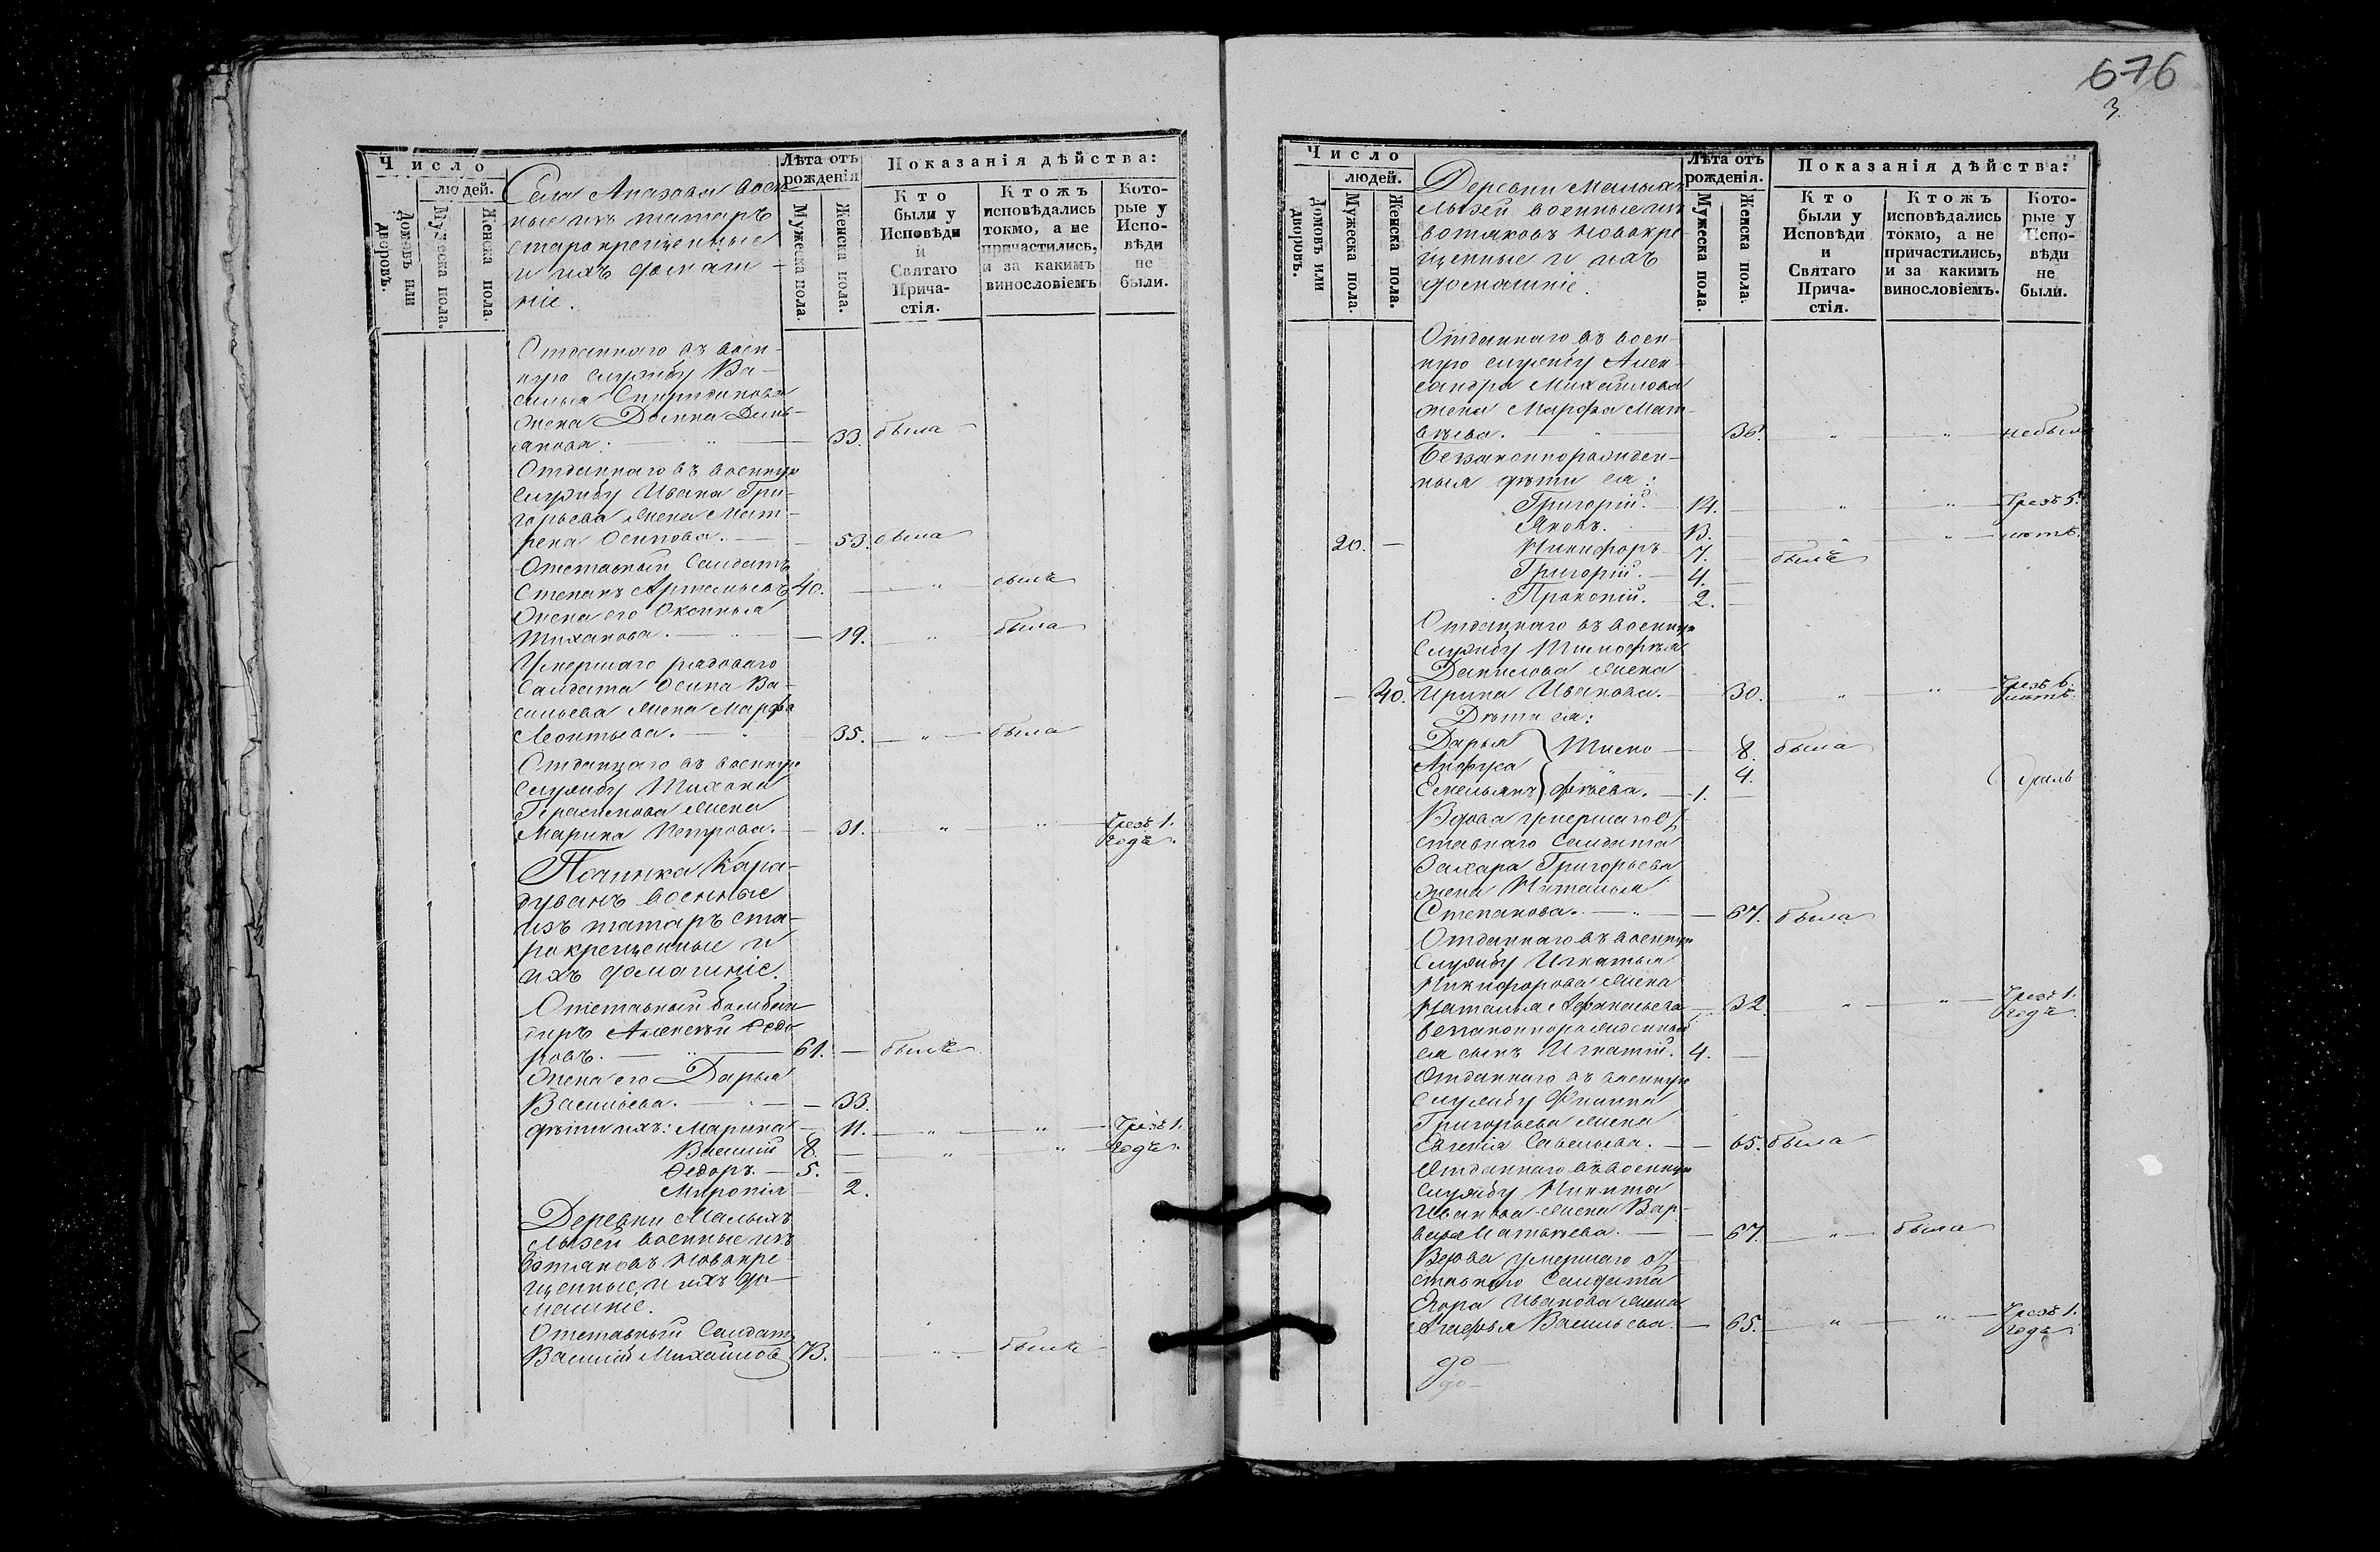 676
3.
Число
людей.
Домовъ или дворовъ.
Мужеска пола.
Женска пола.
Села Апазова воен-
ные изъ татаръ
старокрещенные
и ихъ домаш-
ніе.
Лѣта отъ рожденія
Мужеска пола.
Женска пола.
Показанія дѣйства:
Кто были у Исповѣди и Святаго Прича-стія.
Ктожъ исповѣдались токмо, а не причастились, и за какимъ винословіемъ
Кото-рые у Испо-вѣди не были.
Отданнаго въ воен-
ную службу Ва-
силья Спиридонова
жена Домна Демь-
янова. — 33. была
Отданнаго въ военную
службу Ивана Гри-
горьева жена Мат-
рена Осипова. — 53. была
Отставный Солдатъ
Степанъ Артемьевъ 40. — " — былъ
Жена его Оксинья
Тиханова. — 19. " была
Умершаго рядоваго
Солдата Осипа Ва-
сильева жена Марфа
Леонтьева. — 35. — " — была
Отданнаго въ военную
службу Тихона
Герасимова жена
Марина Петрова. — 31. — " — " — Чрезъ 1.
годъ.
Починка Кара-
дуванъ военные
изъ татаръ ста-
рокрещенные и
ихъ домашніе.
Отставный бомбан-
диръ Алексѣй Ѳедо-
ровъ. — 61. — былъ
Жена его Дарья
Васильева. — 33.
дѣти ихъ: Марина — 11. — " — " — Чрезъ 1.
Василій 8. — " — " — годъ.
Ѳедоръ. — 5. —
Миропія — 2.
Деревни Малыхъ
Лызей военные изъ
вотяковъ новокре-
щенные, и ихъ до-
машніе.
Отставный Солдатъ
Василій Михайловъ 73. — " — былъ
Число
людей.
Домовъ или дворовъ.
Мужеска пола.
Женска пола.
Деревни Малыхъ
Лызей военные изъ
вотяковъ новокре-
щенные и ихъ
домашніе.
Лѣта отъ рожденія.
Мужеска пола
Женска пола.
Показанія дѣйства:
Кто были у Исповѣди и Святаго Прича-стія.
Ктожъ исповѣдались токмо, а не причастились, и за какимъ винословіемъ.
Кото-рые у Испо-вѣди не были.
Отданнаго въ воен-
ную службу Алек-
сандра Михайлова
жена Марфа Мат-
вѣева. — 36. " — " — не была
Беззаконнорожден-
ныя дѣти ея:
Григорій. — 14. — " — " — Чрезъ 5.
Яковъ. 13. — " — " — лѣтъ.
20. — Никифоръ 7. — былъ
Григорій. — 4. —
Прокопій. — 2. —
Отданнаго въ военную
службу Тимофѣя
Данилова жена
— 40. Ирина Иванова. — 30. " — " — Чрезъ 6.
лѣтъ.
Дѣти ея:
Дарья } Тимо- — 8. была
Анфуса — 4.
Емельянъ } фѣева. — 1. —
Вдова умершаго от-
ставнаго Солдата
Захара Григорьева
жена Наталья
Степанова. — " — 67. была
Отданнаго въ военную
службу Игнатья
Никифорова жена
Наталья Афанасьева — 32. " — " — Чрезъ 1.
годъ.
беззаконнорожденный
ея сынъ Игнатій. 4. —
Отданнаго въ военную
службу Филипа
Григорьева жена
Евгенія Савельева. — 65. была
Отданнаго въ военную
службу Никита
Иванова жена Вар-
вара Матвѣева. — 67. — " — была
Вдова умершаго от-
ставнаго Солдата
Егора Иванова жена
Агафья Васильева. — 65. — " — " — Чрезъ 1.
годъ
до-